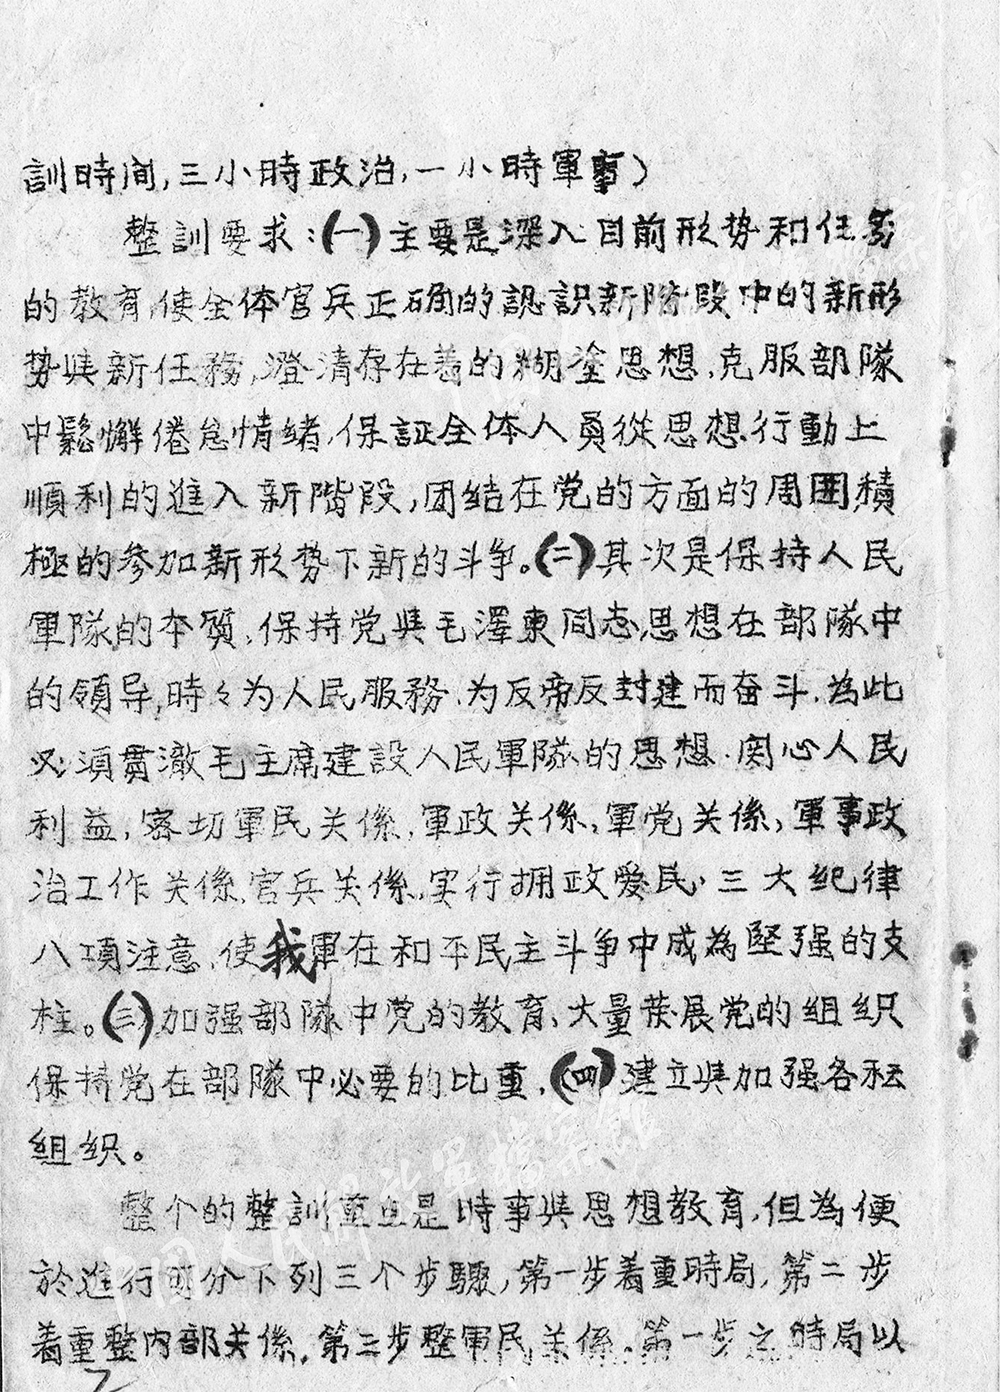 訓時间,三小時政治,一小時軍事)
整訓要求:(一)主要是深入目前形势和任务
的教育,使全体官兵正确的認識新階段中的新形
势與新任務,澄清存在着的糊塗思想,克服部隊
中鬆懈倦怠情绪,保証全体人員從思想行動上
順利的進入新階段,团结在党的方面的周囲,積
極的参加新形势下新的斗争。(二)其次是保持人民
軍隊的本質,保持党與毛澤東同志思想在部隊中
的領导,時々为人民服務,为反帝反封建而奋斗,為此
必須貫澈毛主席建設人民軍隊的思想,関心人民
利益,密切軍民关係,軍政关係,軍党关係,軍事政
治工作关係,官兵关係,实行拥政爱民,三大纪律
八項注意,使我軍在和平民主斗争中成為堅强的支
柱。(三)加强部隊中党的教育,大量发展党的组织
保持党在部隊中必要的比重,(四)建立與加强各种
组织。
整个的整訓重点是時事與思想教育,但為便
於進行可分下列三个步驟,第一步着重時局,第二步
着重整内部关係,第三步整軍民关係,第一步之時局以
中国人民解放军档案馆